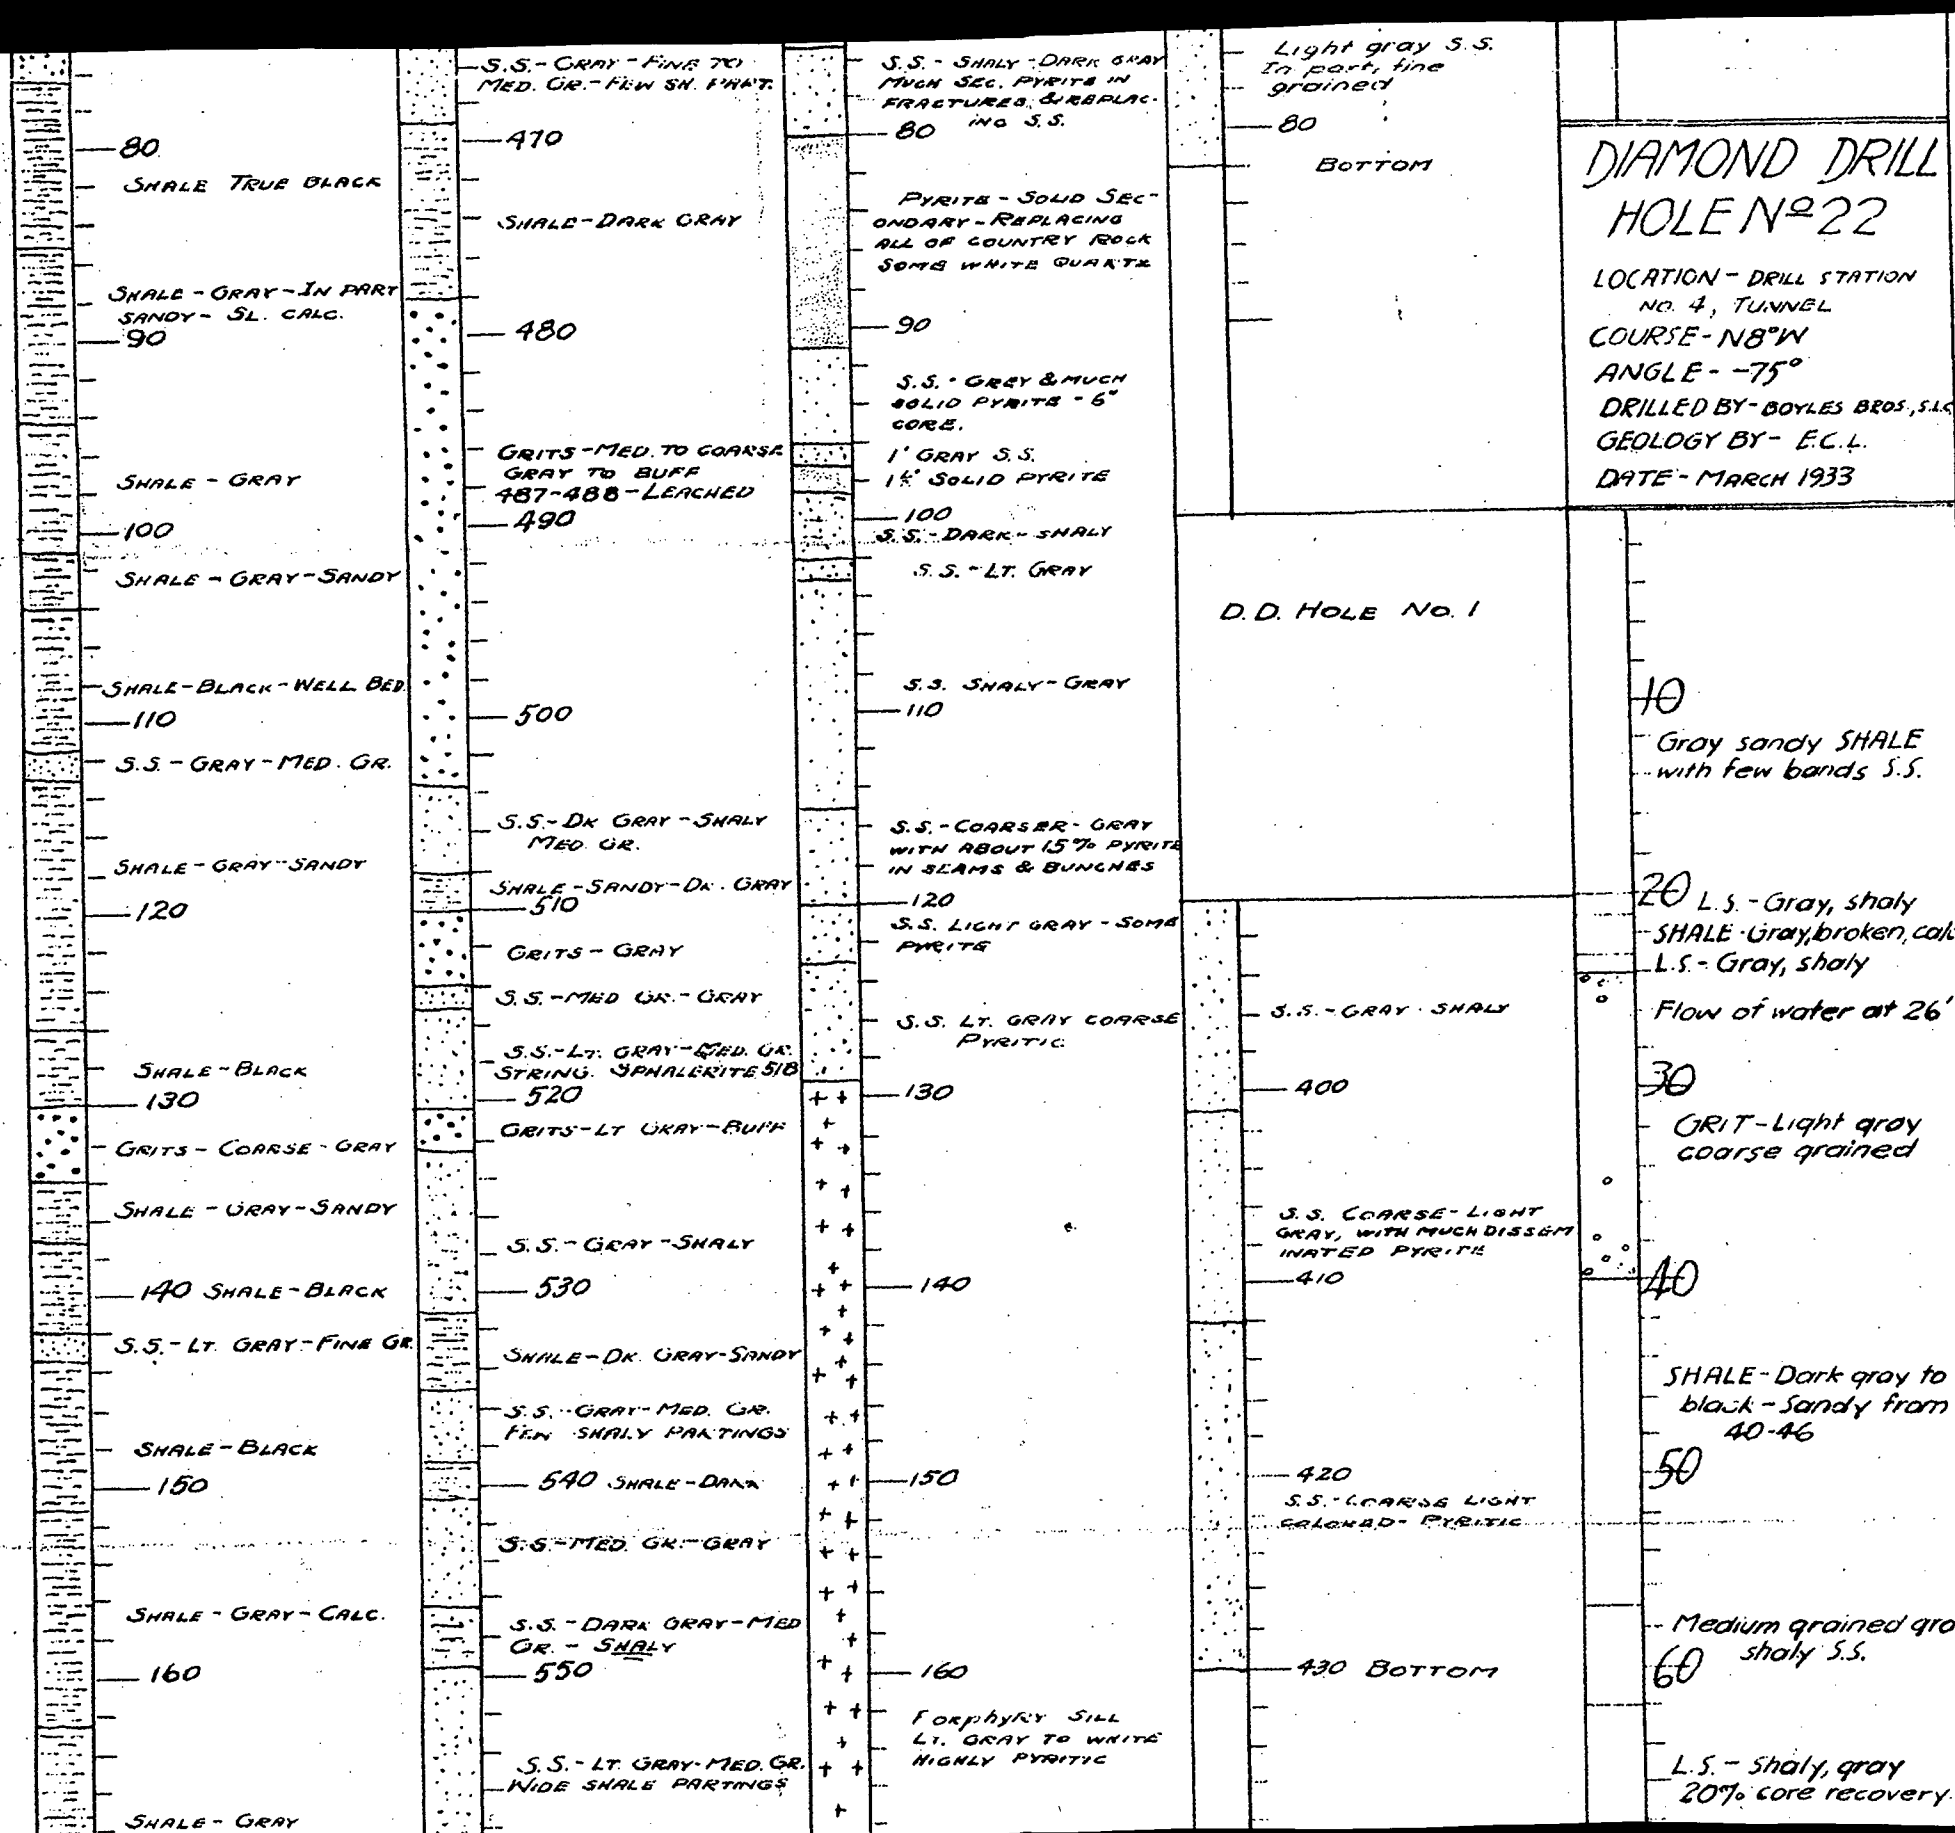 80
SHALE TRUE BLACK
SHALE - GRAY - IN PART
SANDY - SL. CALC.
90
SHALE - GRAY
100
SHALE - GRAY - SANDY
SHALE - BLACK - WELL BED.
110
S.S. - GRAY - MED. GR.
SHALE - GRAY - SANDY
120
SHALE - BLACK
130
GRITS - COARSE - GRAY
SHALE - GRAY - SANDY
140 SHALE - BLACK
S.S. - LT. GRAY - FINE GR.
SHALE - BLACK
150
SHALE - GRAY - CALC.
160
SHALE - GRAY
S.S. - GRAY - FINE TO
MED. GR. - FEW SH. PART.
470
SHALE - DARK GRAY
480
GRITS - MED. TO COARSE
GRAY TO BUFF
487-488 - LEACHED
490
500
S.S. - DK GRAY - SHALY
MED. GR.
SHALE - SANDY - DK. GRAY
510
GRITS - GRAY
S.S. - MED GR. - GRAY
S.S. - LT. GRAY - MED. GR.
STRING. SPHALERITE 518
520
GRITS - LT GRAY - BUFF
S.S. - GRAY - SHALY
530
SHALE - DK. GRAY - SANDY
S.S. - GRAY - MED. GR.
FEW SHALY PARTINGS
540 SHALE - DARK
S.S. - MED. GR. - GRAY
S.S. - DARK GRAY - MED
GR. - SHALY
550
S.S. - LT. GRAY - MED. GR.
WIDE SHALE PARTINGS
S.S. - SHALY - DARK GRAY
MUCH SEC. PYRITE IN
FRACTURES, & REPLAC-
ING S.S.
80
PYRITE - SOLID SEC-
ONDARY - REPLACING
ALL OF COUNTRY ROCK
SOME WHITE QUARTZ
90
S.S. - GREY & MUCH
SOLID PYRITE - 6"
CORE.
1' GRAY S.S.
SOLID PYRITE
100
S.S. - DARK - SHALY
S.S. - LT. GRAY
S.S. SHALY - GRAY
110
S.S. - COARSER - GRAY
WITH ABOUT 15% PYRITE
IN SEAMS & BUNCHES
120
S.S. LIGHT GRAY - SOME
PYRITE
S.S. LT. GRAY COARSE
PYRITIC
130
140
150
160
PORPHYRY SILL
LT. GRAY TO WHITE
HIGHLY PYRITIC
Light gray S.S.
In part, fine
grained
80
BOTTOM
D.D. HOLE No. 1
S.S. - GRAY - SHALY
400
S.S. COARSE - LIGHT
GRAY, WITH MUCH DISSEM
INATED PYRITE
410
420
S.S. - COARSE LIGHT
COLORED - PYRITIC
430 BOTTOM
DIAMOND DRILL
HOLE Nº 22
LOCATION - DRILL STATION
NO. 4, TUNNEL
COURSE - N8°W
ANGLE - -75°
DRILLED BY - BOYLES BROS., S.L.C
GEOLOGY BY - E.C.L.
DATE - MARCH 1933
10
Gray sandy SHALE
with few bands S.S.
20 L.S. - Gray, shaly
SHALE - Gray, broken, calc
L.S. - Gray, shaly
Flow of water at 26'
30
GRIT - Light gray
coarse grained
40
SHALE - Dark gray to
black - Sandy from
40-46
50
Medium grained gra
shaly S.S.
60
L.S. - Shaly, gray
20% core recovery